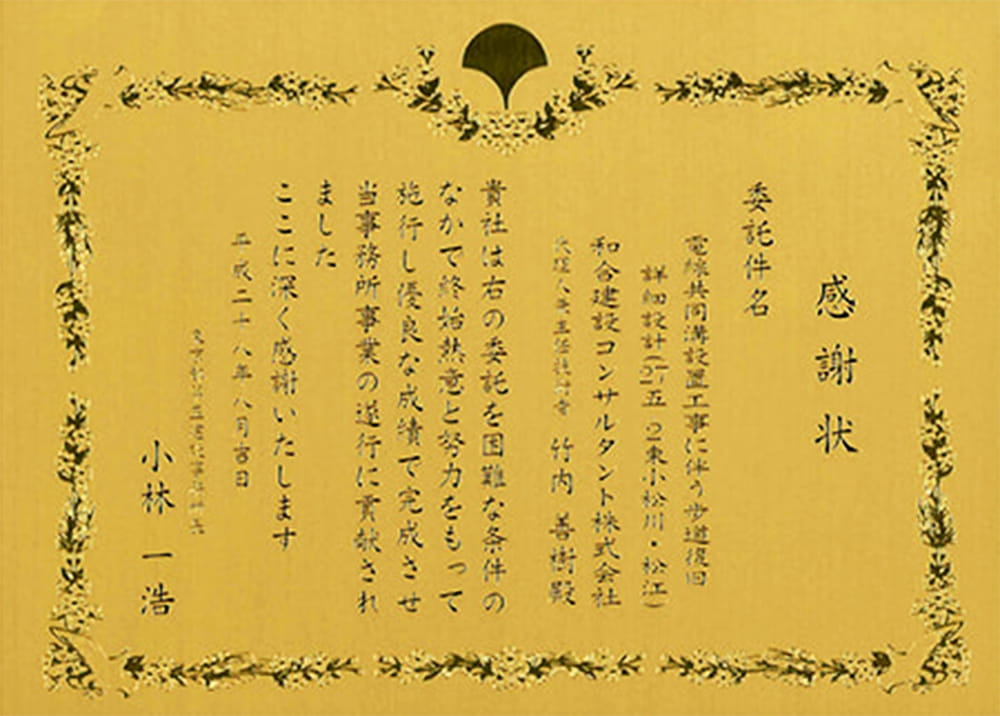 感謝状
委託件名
電線共同溝設置工事に伴う歩道復旧
詳細設計( 五 2東小松川・松江)
和合建設コンサルタント株式会社
竹内 善樹殿
貴社は右の委託を困難な条件の
なかで終始熱意と努力をもって
施行し優良な成績で完成させ
当事務所事業の遂行に貢献され
ました
ここに深く感謝いたします
平成二十八年八月吉日
小林 一浩